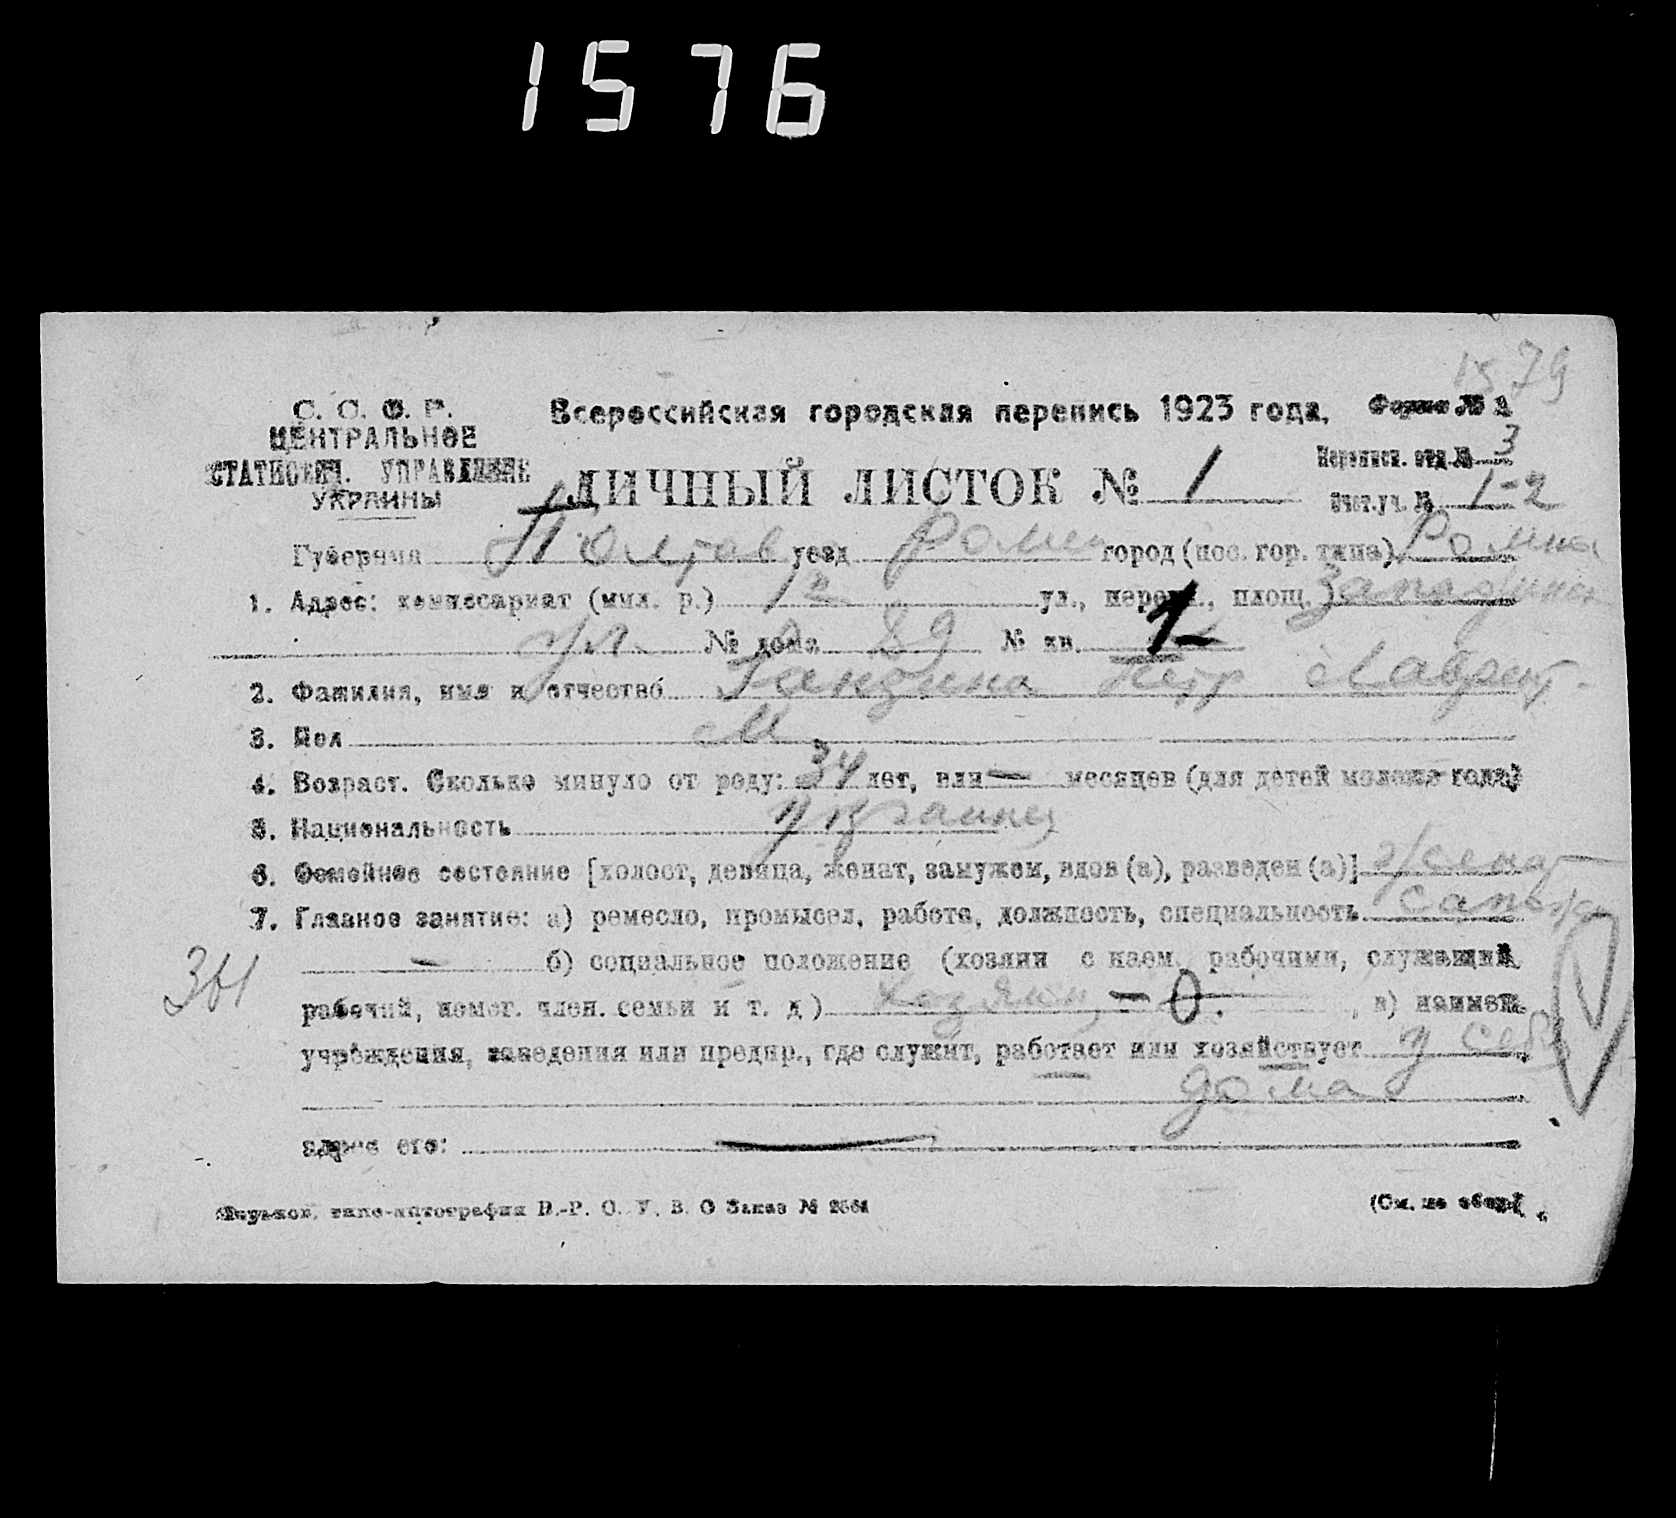 1576
1579
С. С. Ф. Р.
ЦЕНТРАЛЬНОЕ
СТАТИСТИЧ. УПРАВЛЕНИЕ
УКРАИНЫ
Всероссийская городская перепись 1923 года, Форма № А
ЛИЧНЫЙ ЛИСТОК № 1
Переписн. отд. № 3
Счет.уч. № 1-2
Губерния Полтав уезд Ромен город (пос. гор. типа) Ромна
1. Адрес: комиссариат (мил. р.) 12 ул., переул., площ.
ул. № дома 89 № кв. 1
2. Фамилия, имя и отчество Петр Лаврент.
3. Пол М
4. Возраст. Сколько минуло от роду: 34 лет, или — месяцев (для детей моложе года)
5. Национальность украинец
6. Семейное состояние [холост, девица, женат, замужем, вдов (а), разведен (а)] женат
7. Главное занятие: а) ремесло, промысел, работа, должность, специальность сапож
— б) социальное положение (хозяин с наем. рабочими, служащий,
рабочий, помог. член. семьи и т. д) хозяин — 0. , в) наимен.
учреждения, заведения или предпр., где служит, работает или хозяйствует у себя
дома
адрес его: —
типо-литография В.-Р. О. У. В. О Заказ №
(См. на обор.